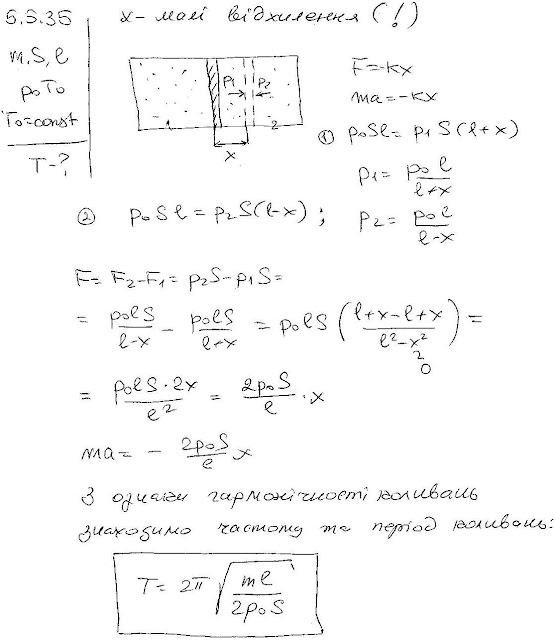 5.5.35
x - малі відхилення (!)
m, S, l
p₀ T₀
T₀ = const
T - ?
p₁
p₂
1
2
x
F = -kx
ma = -kx
① p₀Sl = p₁S(l+x)
p₁ = p₀l/(l+x)
② p₀Sl = p₂S(l-x) ; p₂ = p₀l/(l-x)
F = F₂ - F₁ = p₂S - p₁S =
= p₀lS/(l-x) - p₀lS/(l+x) = p₀lS ((l+x-l+x)/(l²-x²)) =
≀
0
= p₀lS·2x/l² = 2p₀S/l · x
ma = - 2p₀S/l x
З ознаки гармонічності коливань
знаходимо частоту та період коливань:
T = 2π √(ml/2p₀S)